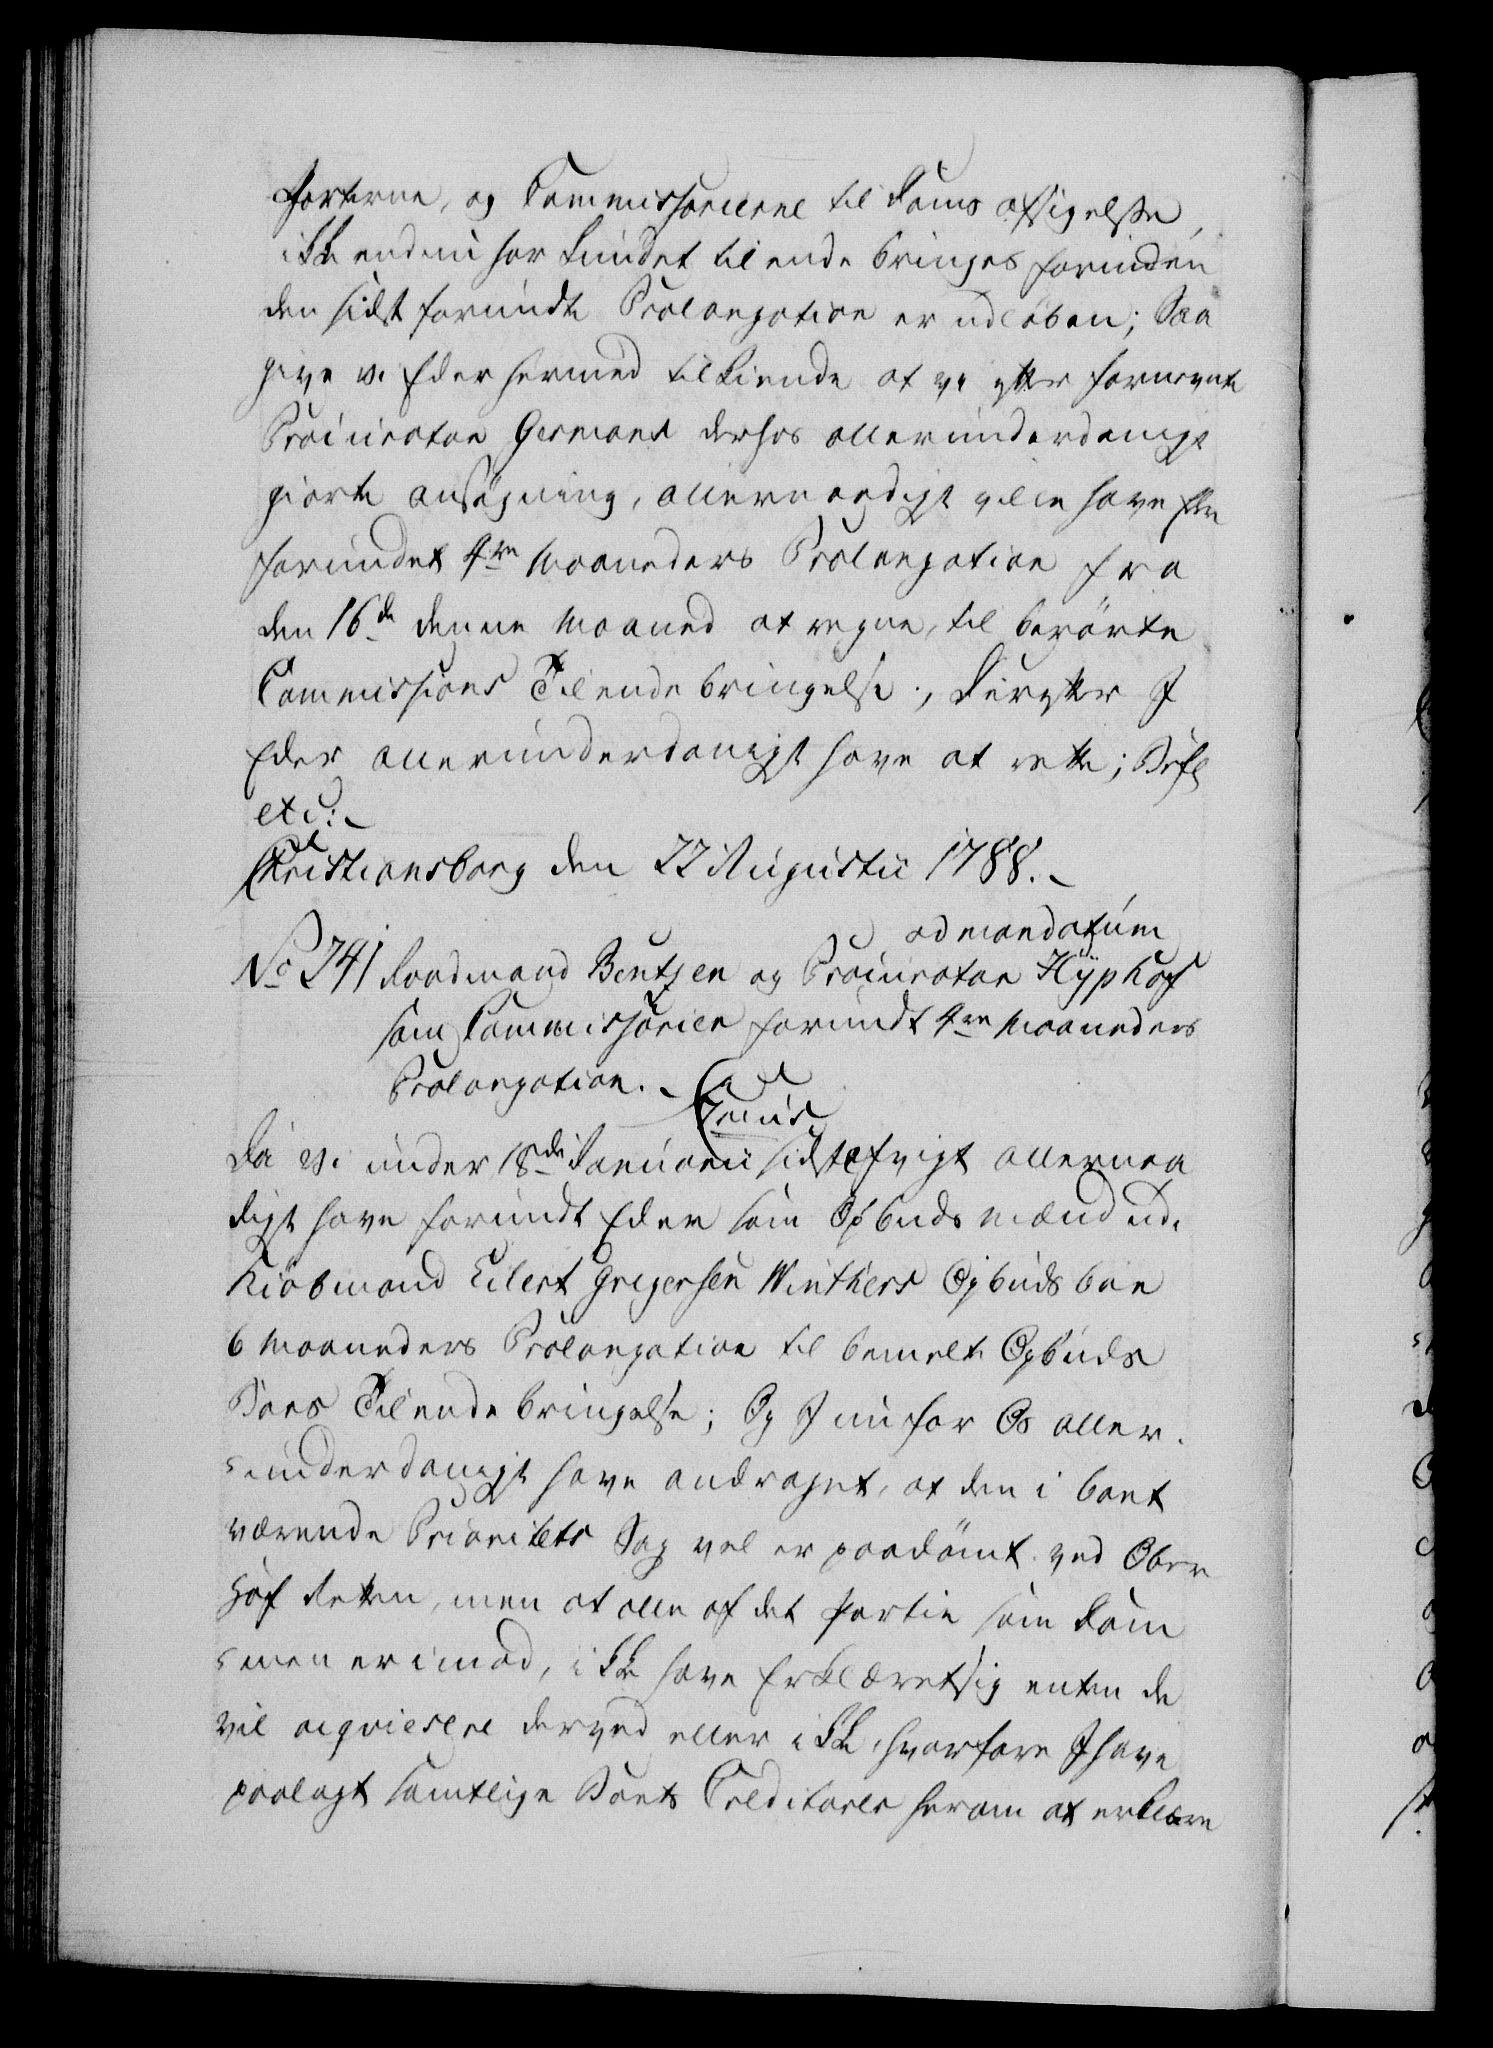 Parterne, og Commissarierne til Doms afsigelse,
ikke endnu har kundet til ende bringes forinden
den sidst forundte Prolongation er udløben; Saa
give vi Eder hermed tilkiende at vi efter fornevnte
Procurator Germans derhos allerunderdanigst
giorte ansøgning, allernaadigst ville have Eder
forundet 4re Maaneders Prolongation fra
den 16de denne Maaned at regne, til berørte
Commissions Tilendebringelse, Derefter I
Eder allerunderdanigst have at rette; Befal
etc:
Christiansborg den 22 Augustii 1788.
ad mandatum
No 241 Raadmand Bentzen og Procurator Hÿphof
som Commissarier forundt 4re Maaneders
Prolongation.
C 7mus
Da vi under 18de Januarii sidstafvigt allernaa
digst have forundt Eder som Opbuds mænd udi
Kiøbmand Eilert Gregersen Winthers Opbuds boe
6 Maaneders Prolongation til bemelte Opbuds
Boes Tilendebringelse; Og I nu for Os aller-
underdanigst have andraget, at den i boet
værende Prioritets Sag vel er paadømt ved Ober
Hof Retten, men at alle af det Partie som Dom
men er imod, ikke have Erklæret sig enten de
vil acqviescere derved eller ikke, hvorfore I have
paalagt samtlige Boets Creditorer herom at erklære